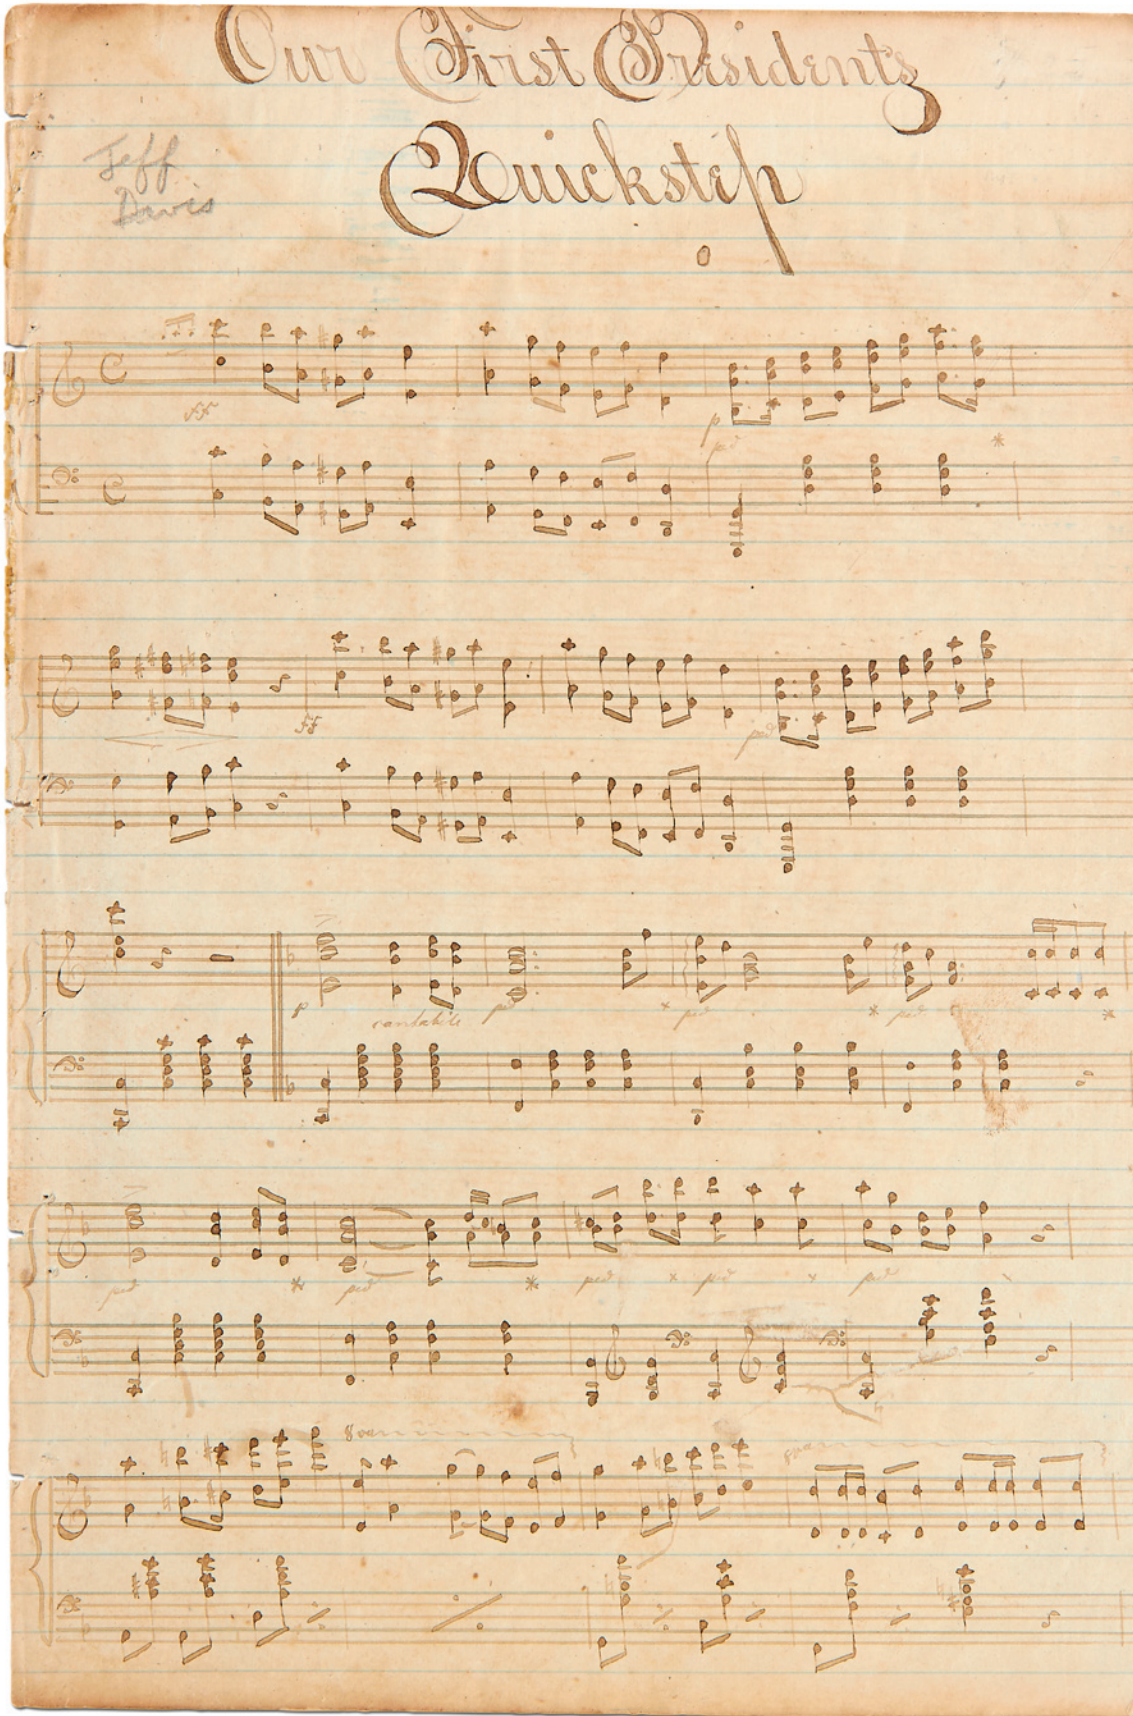 Our First Presidents
Quickstep
Jeff
Davis
p
ped
*
ff
ped
p
cantabile
ped
*
ped
*
ped
*
ped
*
ped
*
ped
*
ped
*
ped
8va
8va